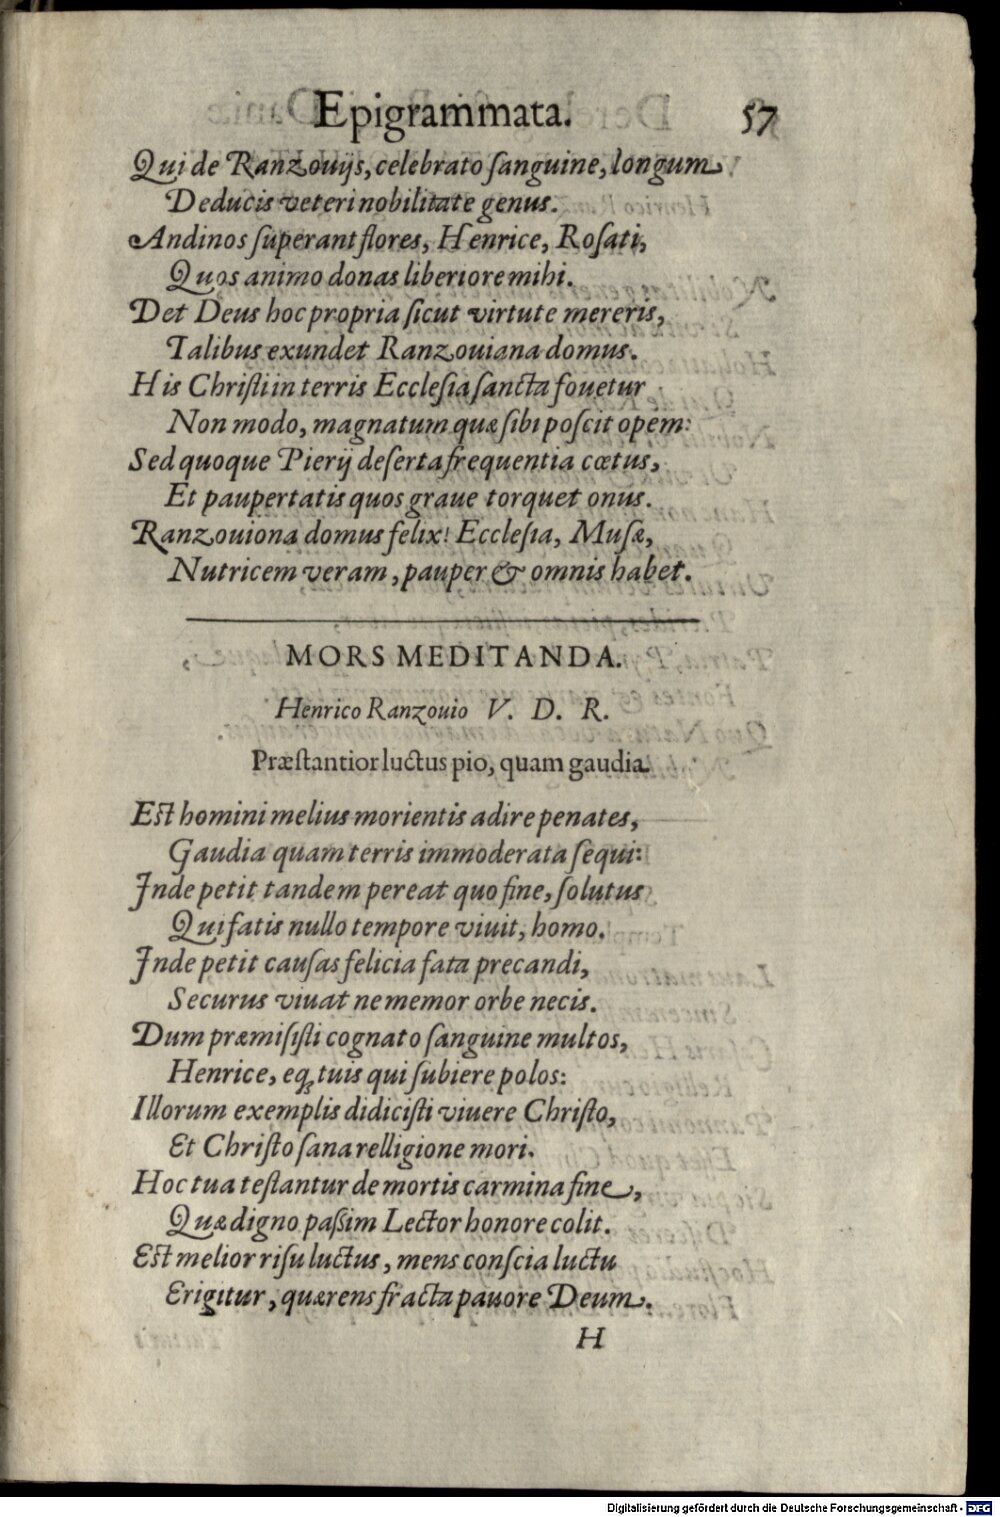 Epigrammata. 57
Qui de Ranzouijs, celebrato ſanguine, longum
Deducis veteri nobilitate genus.
Andinos ſuperant flores, Henrice, Roſati,
Quos animo donas liberiore mihi.
Det Deus hoc propria ſicut virtute mereris,
Talibus exundet Ranzouiana domus.
His Chriſti in terris Eccleſia ſancta fouetur
Non modo, magnatum quæ ſibi poſcit opem:
Sed quoque Pierij deſerta frequentia cœtus,
Et paupertatis quos graue torquet onus.
Ranzouiona domus felix! Eccleſia, Muſæ,
Nutricem veram, pauper & omnis habet.
MORS MEDITANDA.
Henrico Ranzouio V. D. R.
Præſtantior luctus pio, quam gaudia.
Eſt homini melius morientis adire penates,
Gaudia quam terris immoderata ſequi:
Inde petit tandem pereat quo fine, ſolutus
Qui fatis nullo tempore viuit, homo.
Inde petit cauſas felicia fata precandi,
Securus viuat ne memor orbe necis.
Dum præmiſiſti cognato ſanguine multos,
Henrice, eq́; tuis qui ſubiere polos:
Illorum exemplis didiciſti viuere Chriſto,
Et Chriſto ſana relligione mori.
Hoc tua teſtantur de mortis carmina fine,
Quæ digno paßim Lector honore colit.
Eſt melior riſu luctus, mens conſcia luctu
Erigitur, quærens fracta pauore Deum.
H
Digitalisierung gefördert durch die Deutsche Forschungsgemeinschaft - DFG